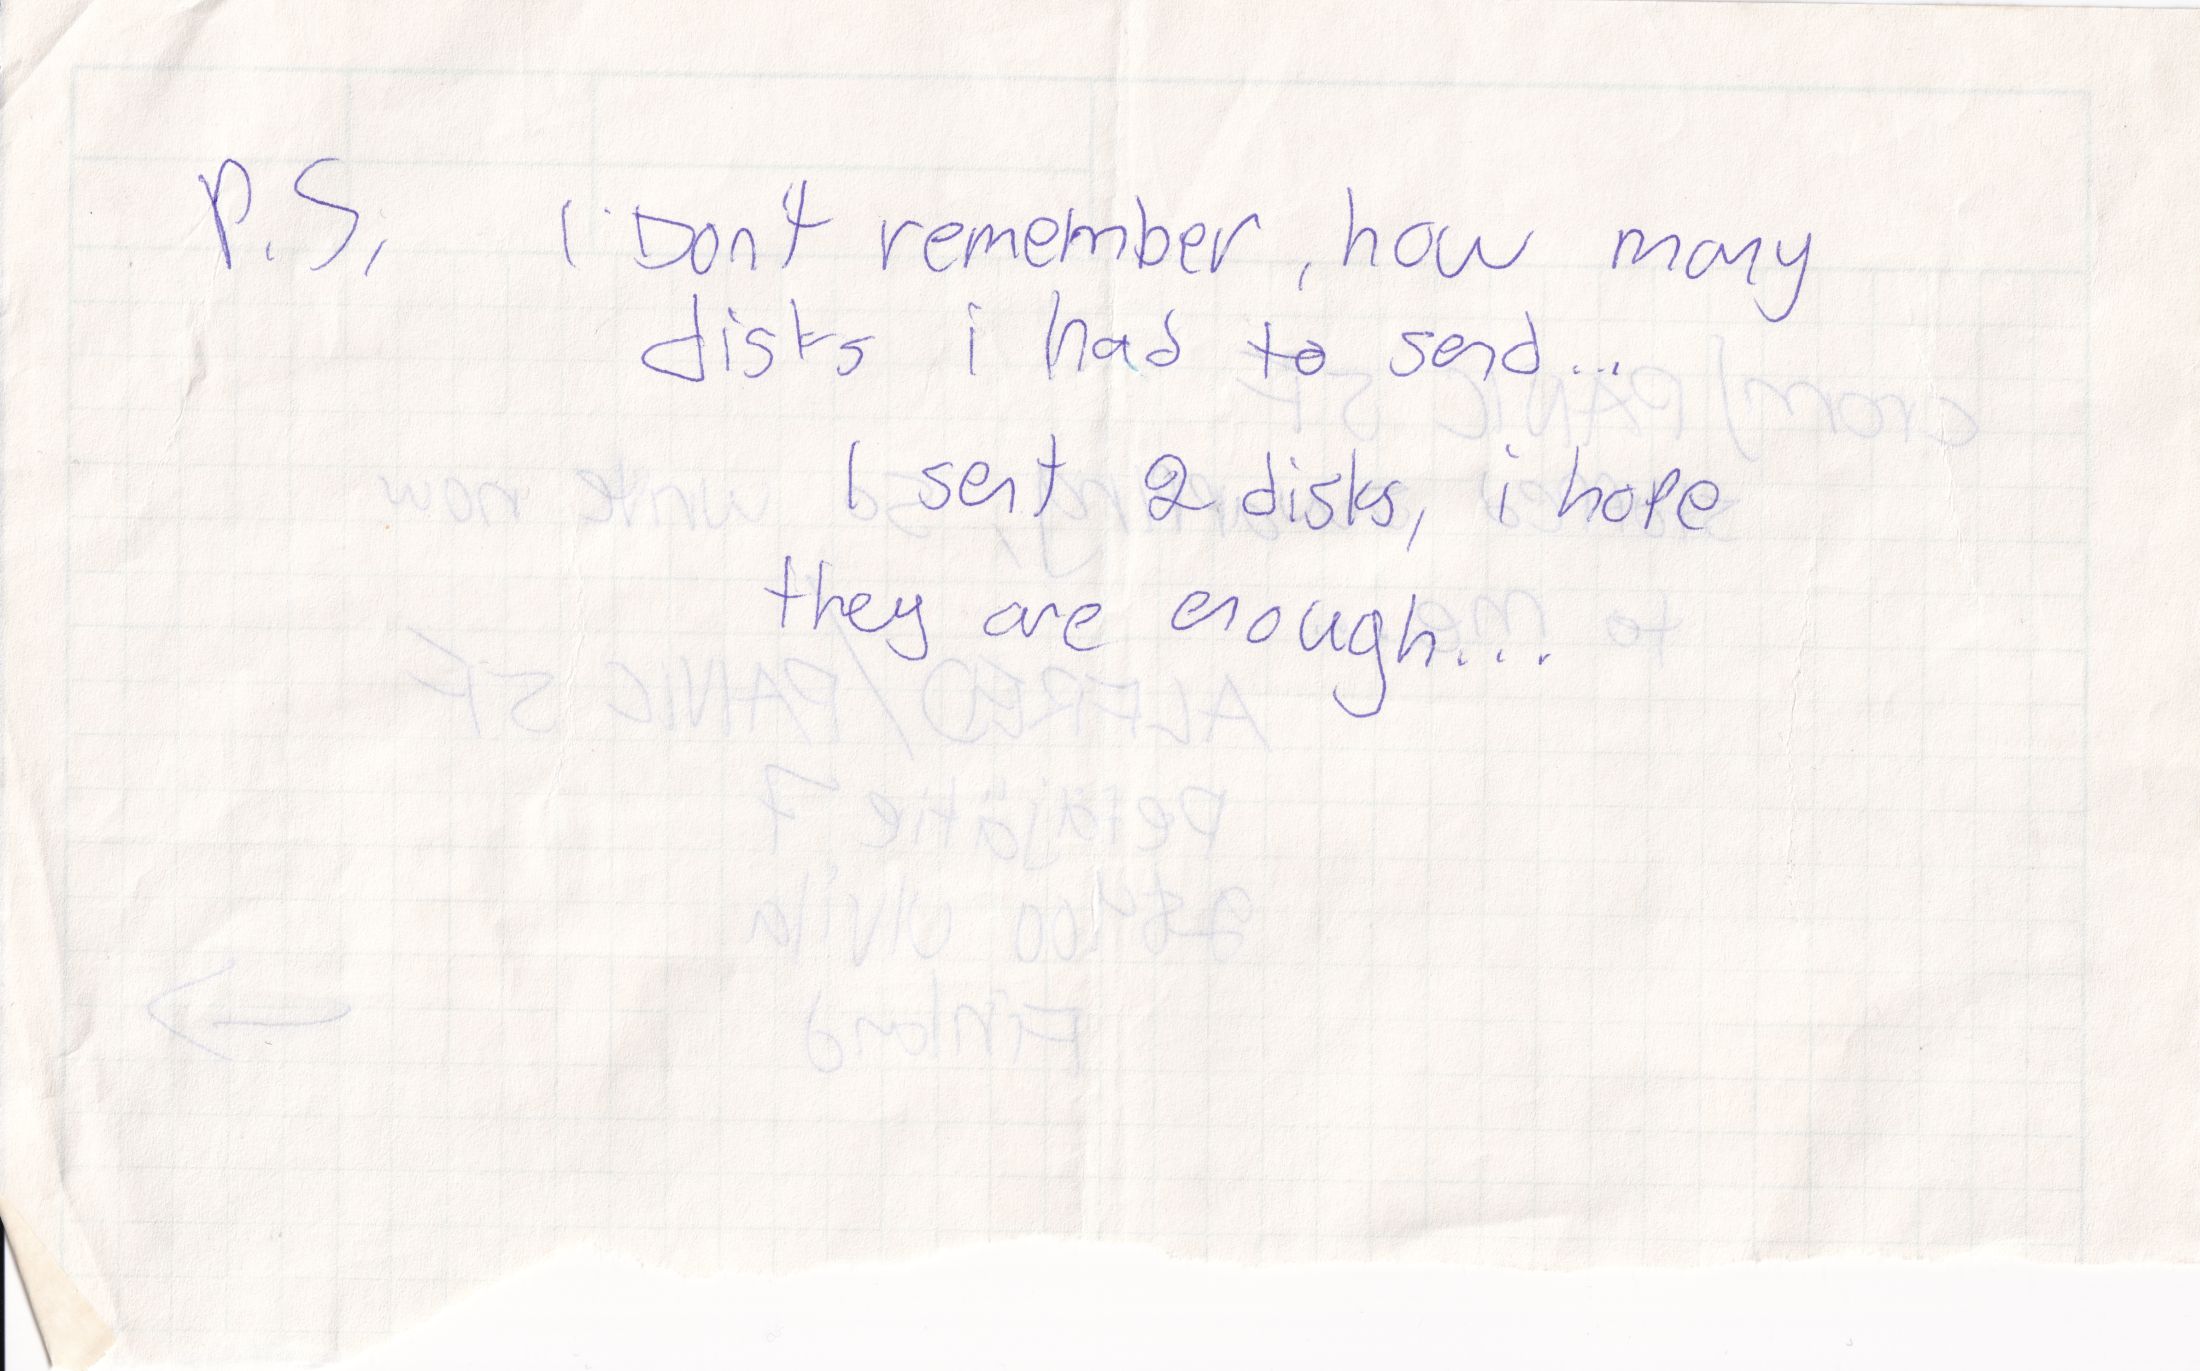 P.S. I Don't remember, how many
disks i had to send...
I sent 2 disks, i hope
they are enough...